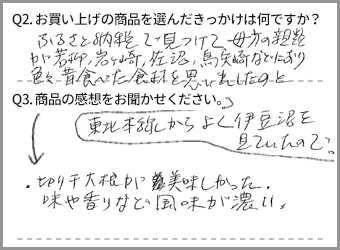 Q2. お買い上げの商品を選んだきっかけは何ですか？
ふるさと納税で見つけて母方の親類
が若柳,岩ヶ崎,佐沼,鳥矢崎などにおり
色々昔食べた食材を思い出したのと
Q3. 商品の感想をお聞かせください。
東北本線からよく伊豆沼を
見ていたので。
・切り干大根が美味しかった。
味や香りなど風味が濃い。